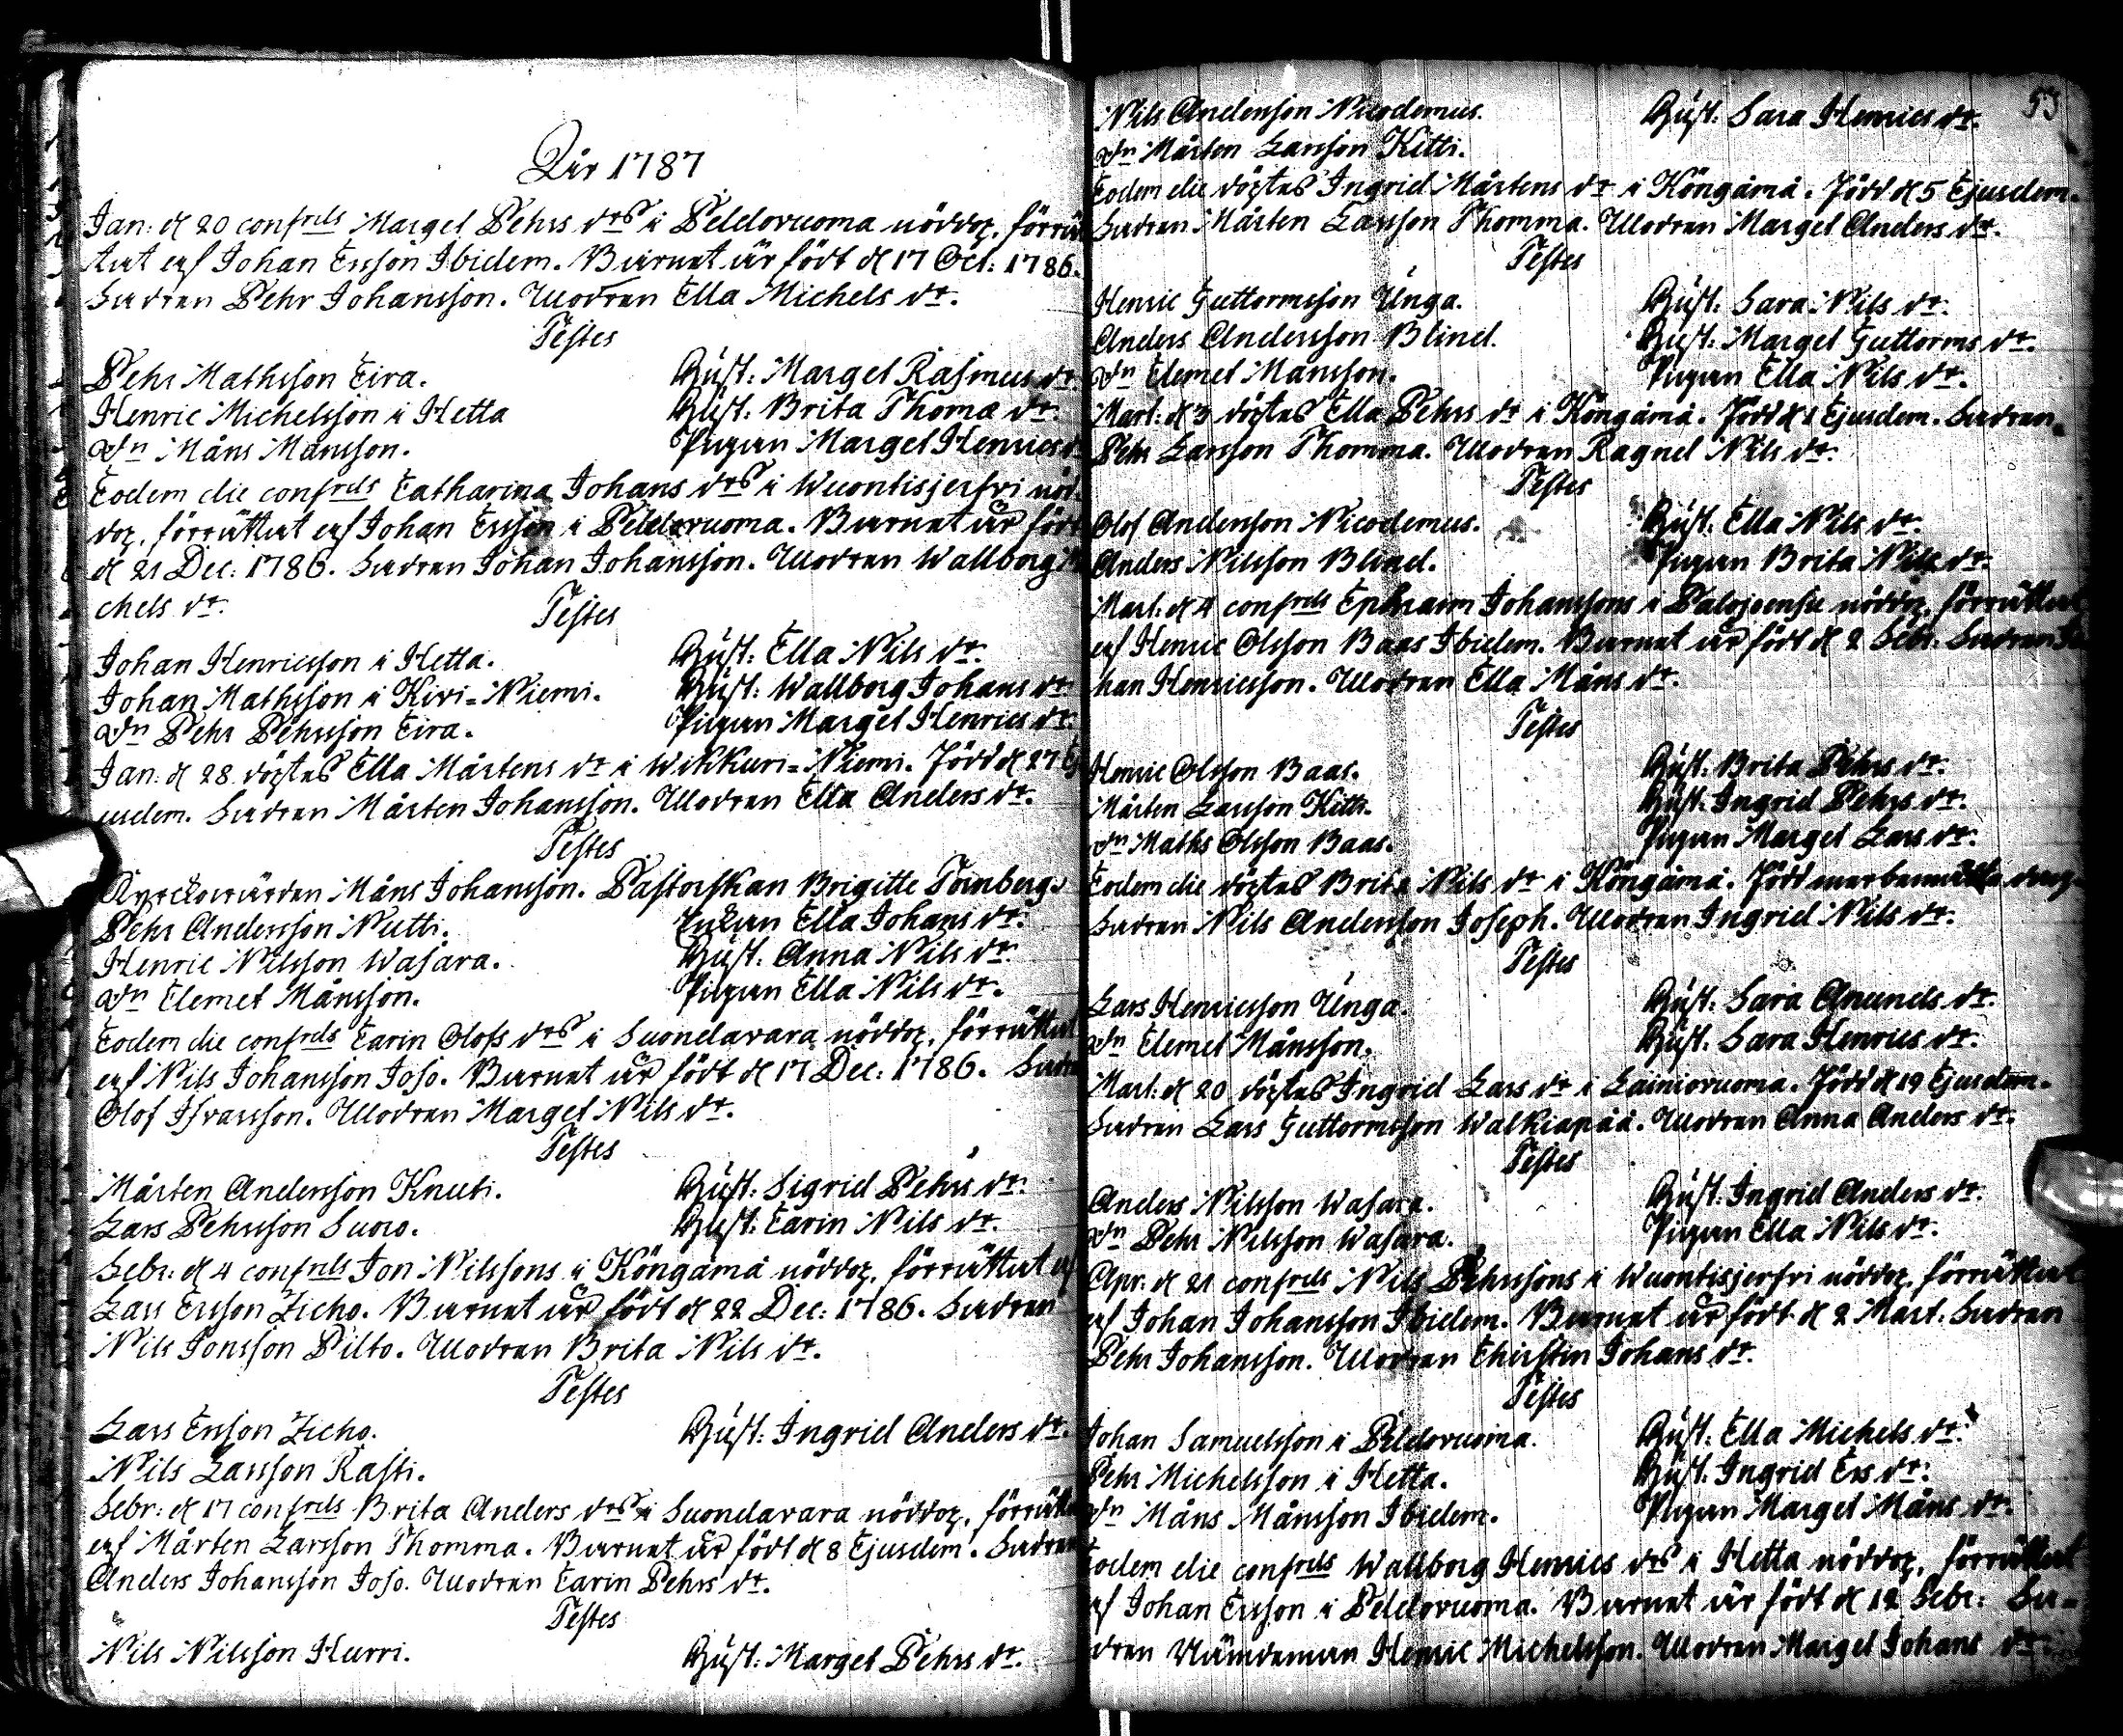 Åhr 1787
Jan: d 20 confrds Marget Pehrs drs i Peldovuoma nöddop, förrät
tat af Johan Ersson Ibidem. Barnet är födt d 17 Oct: 1786.
Fadren Pehr Johansson. Modren Ella Michels dr.
Testes
Pehr Mathsson Eira. Hust: Marget Rasmus dr
Henric Michelsson i Hetta Hust: Brita Thomæ dr.
Dn Måns Månsson. Pigan Marget Henrics
Eodem die confrds Catharina Johans drs i Wuontisjerfvi nöd
dop, förrättat af Johan Ersson i Peldovuoma. Barnet är födt
d 21 Dec: 1786. Fadren Johan Johansson. Modren Wallborg Mi
chels dr.
Testes
Johan Henricsson i Hetta. Hust: Ella Nils dr.
Johan Mathsson i Kivi-Niemi. Hust: Wallborg Johans dr
Dn Pehr Pehrsson Eira. Pigan Marget Henrics dr.
Jan: d 28 döptes Ella Mårtens dr i Wikkuri-Niemi. Född d 27 Ej
usdem. Fadren Mårten Johansson. Modren Ella Anders dr.
Testes
Kyrckowärden Måns Johansson. Pastorskan Brigitte Tornbergs
Pehr Andersson Nutti. Enkan Ella Johans dr.
Henric Nilsson Wasara. Hust: Anna Nils dr.
Dn Clemet Månsson. Pigan Ella Nils dr.
Eodem die confrds Carin Olofs drs i Suondavara nöddop, förrättat
af Nils Johansson Joso. Barnet är födt d 17 Dec: 1786. Fadre
Olof Ifvarsson. Modren Marget Nils dr.
Testes
Mårten Andersson Knuti. Hust: Sigrid Pehrs dr.
Lars Pehrsson Suoro. Hust: Carin Nils dr.
Febr: d 4 confrds Jon Nilssons i Köngämä nöddop, förrättat af
Lars Ersson Zicho. Barnet är födt d 22 Dec: 1786. Fadren
Nils Jonsson Pilto. Modren Brita Nils dr.
Testes
Lars Ersson Zicho. Hust: Ingrid Anders dr.
Nils Larsson Rasti.
Febr: d 17 confrds Brita Anders drs i Suondavara nöddop, förrätta
af Mårten Larsson Thomma. Barnet är födt d 8 Ejusdem. Fadren
Anders Johansson Joso. Modren Carin Pehrs dr.
Testes
Nils Nilsson Hurri. Hust: Marget Pehrs dr.
53
Nils Andersson Nicodemus. Hust: Sara Henrics dr.
Dn Mårten Larsson Kitti.
Eodem die döptes Ingrid Mårtens dr i Köngämä. Född d 5 Ejusdem.
Fadren Mårten Larsson Thomma. Modren Marget Anders dr.
Testes
Henric Guttormsson Unga. Hust: Sara Nils dr.
Anders Andersson Blind. Hust: Marget Guttorms dr.
Dn Clemet Månsson. Pigan Ella Nils dr.
Mart: d 3 döptes Ella Pehrs dr i Köngämä. Född d 1 Ejusdem. Fadren
Pehr Larsson Thomma. Modren Ragnel Nils dr.
Testes
Olof Andersson Nicodemus. Hust: Ella Nils dr.
Anders Nilsson Blind. Pigan Brita Nils dr.
Mart: d 4 confrds Ephraim Johanssons i Palojoensu nöddop, förrättat
af Henric Olsson Baas Ibidem. Barnet är födt d 2 Febr: Fadren Jo
han Henricsson. Modren Ella Måns dr.
Testes
Henric Olsson Baas. Hust: Brita Pehrs dr.
Mårten Larsson Kitti. Hust: Ingrid Pehrs dr.
Dn Maths Olsson Baas. Pigan Marget Lars dr.
Eodem die döptes Brita Nils dr i Köngämä. Född
Fadren Nils Andersson Joseph. Modren Ingrid Nils dr.
Testes
Lars Henricsson Unga. Hust: Sara Anunds dr.
Dn Clemet Månsson. Hust: Sara Henrics dr.
Mart: d 20 döptes Ingrid Lars dr i Lainiovuoma. Född d 19 Ejusdem.
Fadren Lars Guttormsson Walkiapää. Modren Anna Anders dr.
Testes
Anders Nilsson Wasara. Hust: Ingrid Anders dr.
Dn Pehr Nilsson Wasara. Pigan Ella Nils dr.
Apr: d 21 confrds Nils Pehrssons i Wuontisjerfvi nöddop, förrättat
af Johan Johansson Ibidem. Barnet är födt d 2 Mart. Fadren
Pehr Johansson. Modren Christin Johans dr.
Testes
Johan Samuelsson i Peldovuoma. Hust: Ella Michels dr.
Pehr Michelsson i Hetta. Hust: Ingrid Ers dr.
Dn Måns Månsson Ibidem. Pigan Marget Måns dr.
Eodem die confrds Wallborg Henrics drs i Hetta nöddop, förrättat
af Johan Ersson i Peldovuoma. Barnet är födt d 12 Febr: Fa-
dren Nämdeman Henric Michelsson. Modren Marget Johans dr.